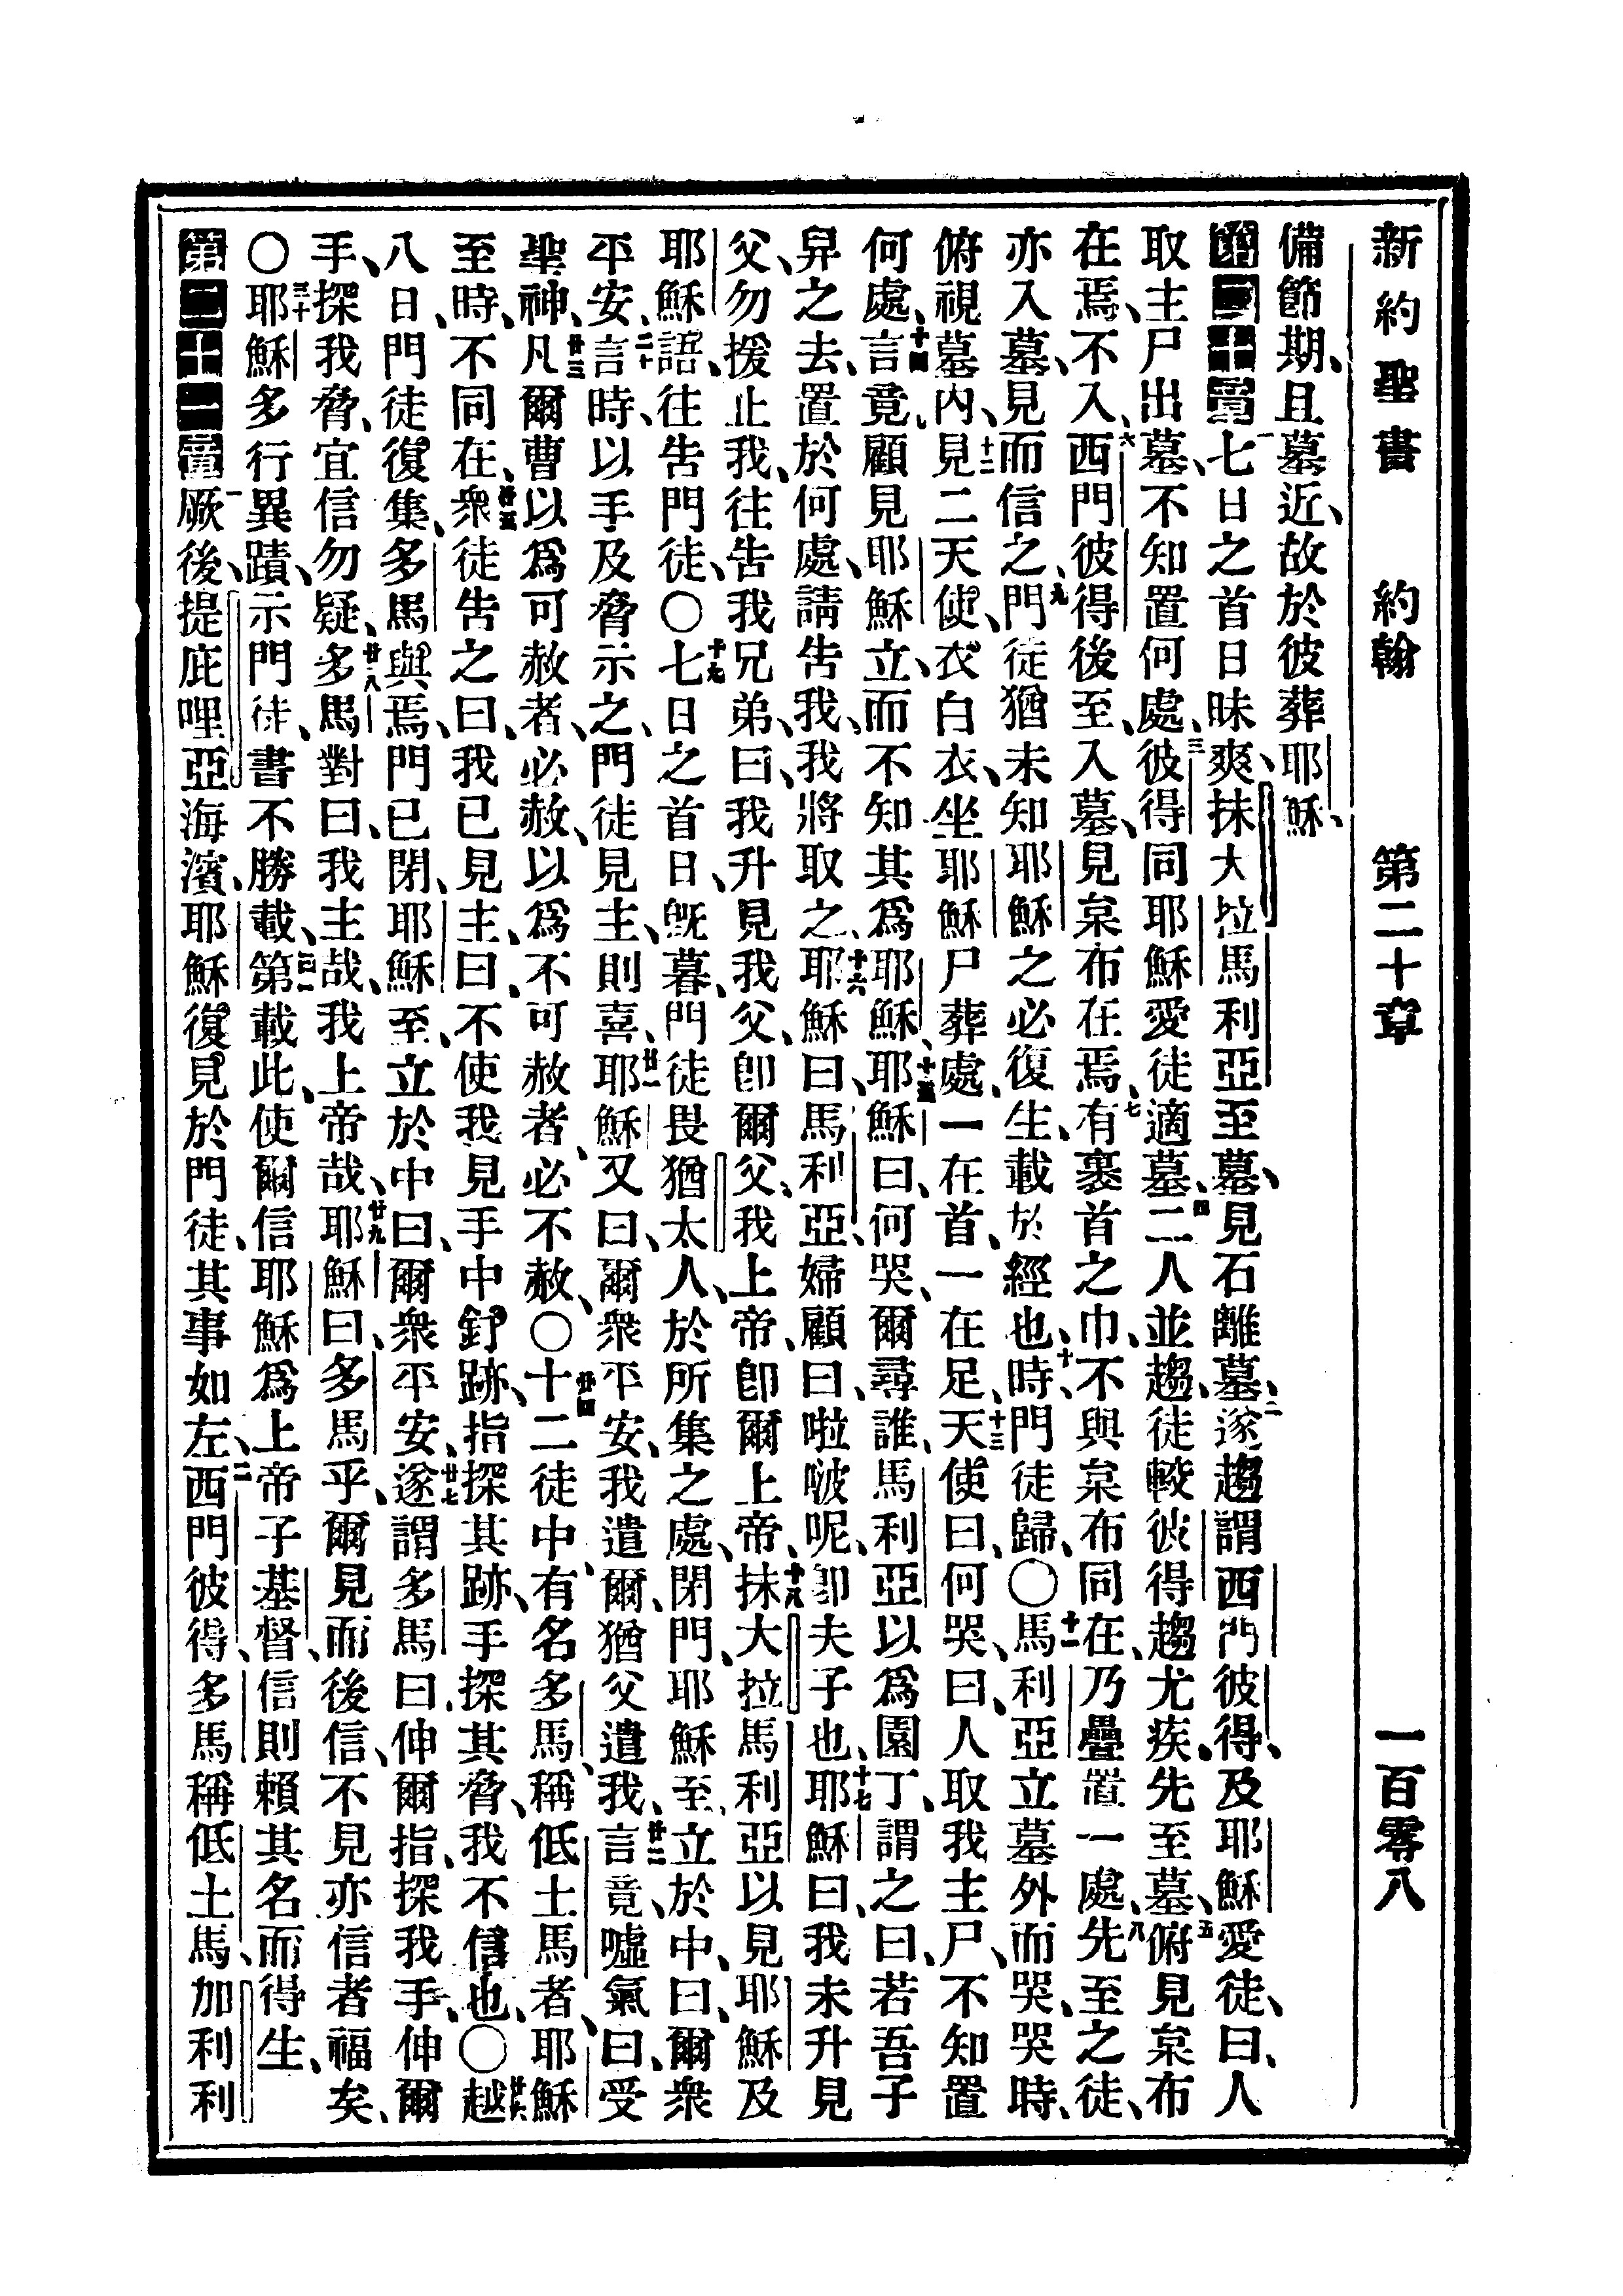 新約聖書 約翰 第二十章 一百零八
備節期、且墓近、故於彼葬耶穌、
第二十章 一七日之首日昧爽、抹大拉馬利亞至墓、見石離墓、二遂趨謂西門彼得、及耶穌愛徒、曰、人
取主尸出墓、不知置何處、三彼得同耶穌愛徒適墓、四二人並趨、徒較彼得趨尤疾、先至墓、五俯見枲布
在焉、不入、六西門彼得後至、入墓、見枲布在焉、七有裹首之巾、不與枲布同在、乃疊置一處、八先至之徒、
亦入墓、見而信之、九門徒猶未知耶穌之必復生、載於經也、十時、門徒歸、〇十一馬利亞立墓外而哭、哭時、
俯視墓內、十二見二天使、衣白衣、坐耶穌尸葬處、一在首、一在足、十三天使曰、何哭、曰、人取我主尸、不知置
何處、十四言竟、顧見耶穌立、而不知其為耶穌、十五耶穌曰、何哭、爾尋誰、馬利亞以為園丁、謂之曰、若吾子
舁之去、置於何處、請告我、我將取之、十六耶穌曰、馬利亞、婦顧曰、啦𠵽呢、卽夫子也、十七耶穌曰、我未升見
父、勿援止我、往告我兄弟、曰、我升見我父、卽爾父、我上帝、卽爾上帝、十八抹大拉馬利亞以見耶穌及
耶穌語、往告門徒、〇十九七日之首日、旣暮、門徒畏猶太人、於所集之處、閉門、耶穌至、立於中、曰、爾衆
平安、二十言時、以手及脅示之、門徒見主、則喜、廿一耶穌又曰、爾衆平安、我遣爾、猶父遣我、廿二言竟、噓氣曰、受
聖神、廿三凡爾曹以為可赦者、必赦、以為不可赦者、必不赦、〇廿四十二徒中、有名多馬、稱低土馬者、耶穌
至時、不同在、廿五衆徒告之曰、我已見主、曰、不使我見手中釘跡、指探其跡、手探其脅、我不信也、〇廿六越
八日、門徒復集、多馬與焉、門已閉、耶穌至、立於中、曰、爾衆平安、廿七遂謂多馬曰、伸爾指、探我手、伸爾
手、探我脅、宜信勿疑、廿八多馬對曰、我主哉、我上帝哉、廿九耶穌曰、多馬乎、爾見而後信、不見亦信者福矣、
〇三十耶穌多行異蹟、示門徒、書不勝載、三一第載此、使爾信耶穌為上帝子基督、信則賴其名而得生、
第二十一章 一厥後、提庇哩亞海濱、耶穌復見於門徒、其事如左、二西門彼得、多馬稱低土馬、加利利